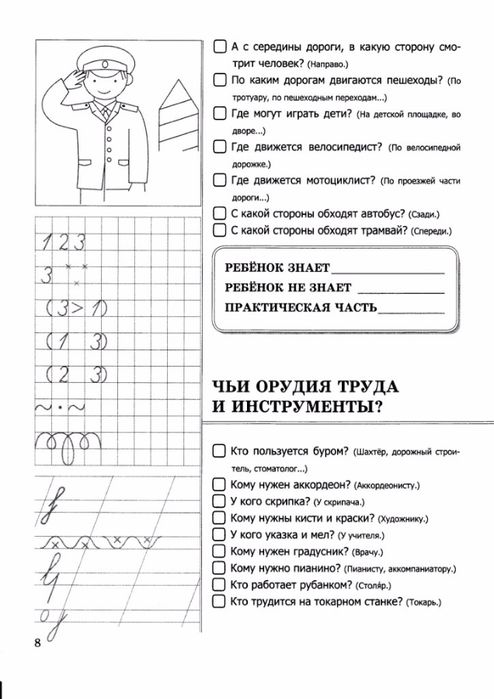 1 2 3
3
(3 > 1)
(1 3)
(2 3)
~ · ~
8
А с середины дороги, в какую сторону смо-
трит человек? (Направо.)
По каким дорогам двигаются пешеходы? (По
тротуару, по пешеходным переходам...)
Где могут играть дети? (На детской площадке, во
дворе...)
Где движется велосипедист? (По велосипедной
дорожке.)
Где движется мотоциклист? (По проезжей части
дороги...)
С какой стороны обходят автобус? (Сзади.)
С какой стороны обходят трамвай? (Спереди.)
РЕБЁНОК ЗНАЕТ
РЕБЁНОК НЕ ЗНАЕТ
ПРАКТИЧЕСКАЯ ЧАСТЬ
ЧЬИ ОРУДИЯ ТРУДА
И ИНСТРУМЕНТЫ?
Кто пользуется буром? (Шахтёр, дорожный строи-
тель, стоматолог...)
Кому нужен аккордеон? (Аккордеонисту.)
У кого скрипка? (У скрипача.)
Кому нужны кисти и краски? (Художнику.)
У кого указка и мел? (У учителя.)
Кому нужен градусник? (Врачу.)
Кому нужно пианино? (Пианисту, аккомпаниатору.)
Кто работает рубанком? (Столяр.)
Кто трудится на токарном станке? (Токарь.)